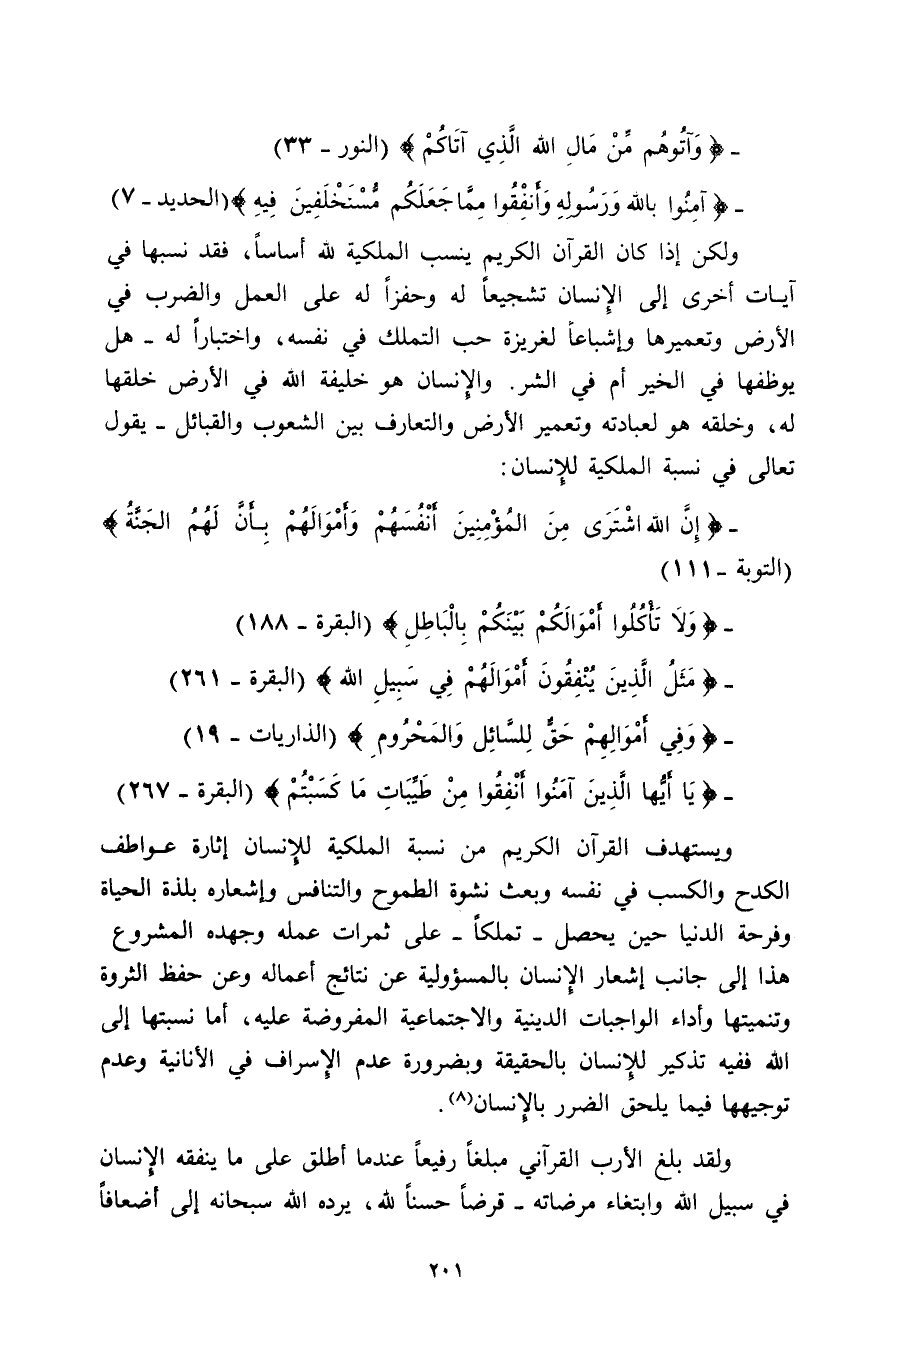 ـ ﴿ وَآتُوهُم مِّنْ مَالِ الله الَّذِي آتَاكُمْ ﴾ (النور ـ ٣٣)
ـ ﴿ آمِنُوا بالله وَرَسُولِهِ وَأَنْفِقُوا مِمَّا جَعَلَكُم مُّسْتَخْلَفِينَ فِيهِ ﴾(الحديد ـ ٧)
ولكن إذا كان القرآن الكريم ينسب الملكية لله أساساً، فقد نسبها في
آيات أخرى إلى الإنسان تشجيعاً له وحفزاً له على العمل والضرب في
الأرض وتعميرها وإشباعاً لغريزة حب التملك في نفسه، واختباراً له ـ هل
يوظفها في الخير أم في الشر. والإنسان هو خليفة الله في الأرض خلقها
له، وخلقه هو لعبادته وتعمير الأرض والتعارف بين الشعوب والقبائل ـ يقول
تعالى في نسبة الملكية للإنسان:
ـ ﴿ إِنَّ الله اشْتَرَى مِنَ المُؤْمِنِينَ أَنْفُسَهُمْ وَأَمْوَالَهُمْ بِأَنَّ لَهُمُ الجَنَّةُ ﴾
(التوبة ـ ١١١)
ـ ﴿ وَلَا تَأْكُلُوا أَمْوَالَكُمْ بَيْنَكُمْ بِالْبَاطِلِ ﴾ (البقرة ـ ١٨٨)
ـ ﴿ مَثَلُ الَّذِينَ يُنْفِقُونَ أَمْوَالَهُمْ فِي سَبِيلِ الله ﴾ (البقرة ـ ٢٦١)
ـ ﴿ وَفِي أَمْوَالِهِمْ حَقٌّ لِلسَّائِلِ وَالمَحْرُومِ ﴾ (الذاريات ـ ١٩)
ـ ﴿ يَا أَيُّها الَّذِينَ آمَنُوا أَنْفِقُوا مِنْ طَيِّبَاتِ مَا كَسَبْتُمْ ﴾ (البقرة ـ ٢٦٧)
ويستهدف القرآن الكريم من نسبة الملكية للإنسان إثارة عواطف
الكدح والكسب في نفسه وبعث نشوة الطموح والتنافس وإشعاره بلذة الحياة
وفرحة الدنيا حين يحصل ـ تملكاً ـ على ثمرات عمله وجهده المشروع
هذا إلى جانب إشعار الإنسان بالمسؤولية عن نتائج أعماله وعن حفظ الثروة
وتنميتها وأداء الواجبات الدينية والاجتماعية المفروضة عليه، أما نسبتها إلى
الله ففيه تذكير للإنسان بالحقيقة وبضرورة عدم الإسراف في الأنانية وعدم
توجيهها فيما يلحق الضرر بالإنسان(٨).
ولقد بلغ الأرب القرآني مبلغاً رفيعاً عندما أطلق على ما ينفقه الإنسان
في سبيل الله وابتغاء مرضاته ـ قرضاً حسناً لله، يرده الله سبحانه إلى أضعافاً
٢٠١